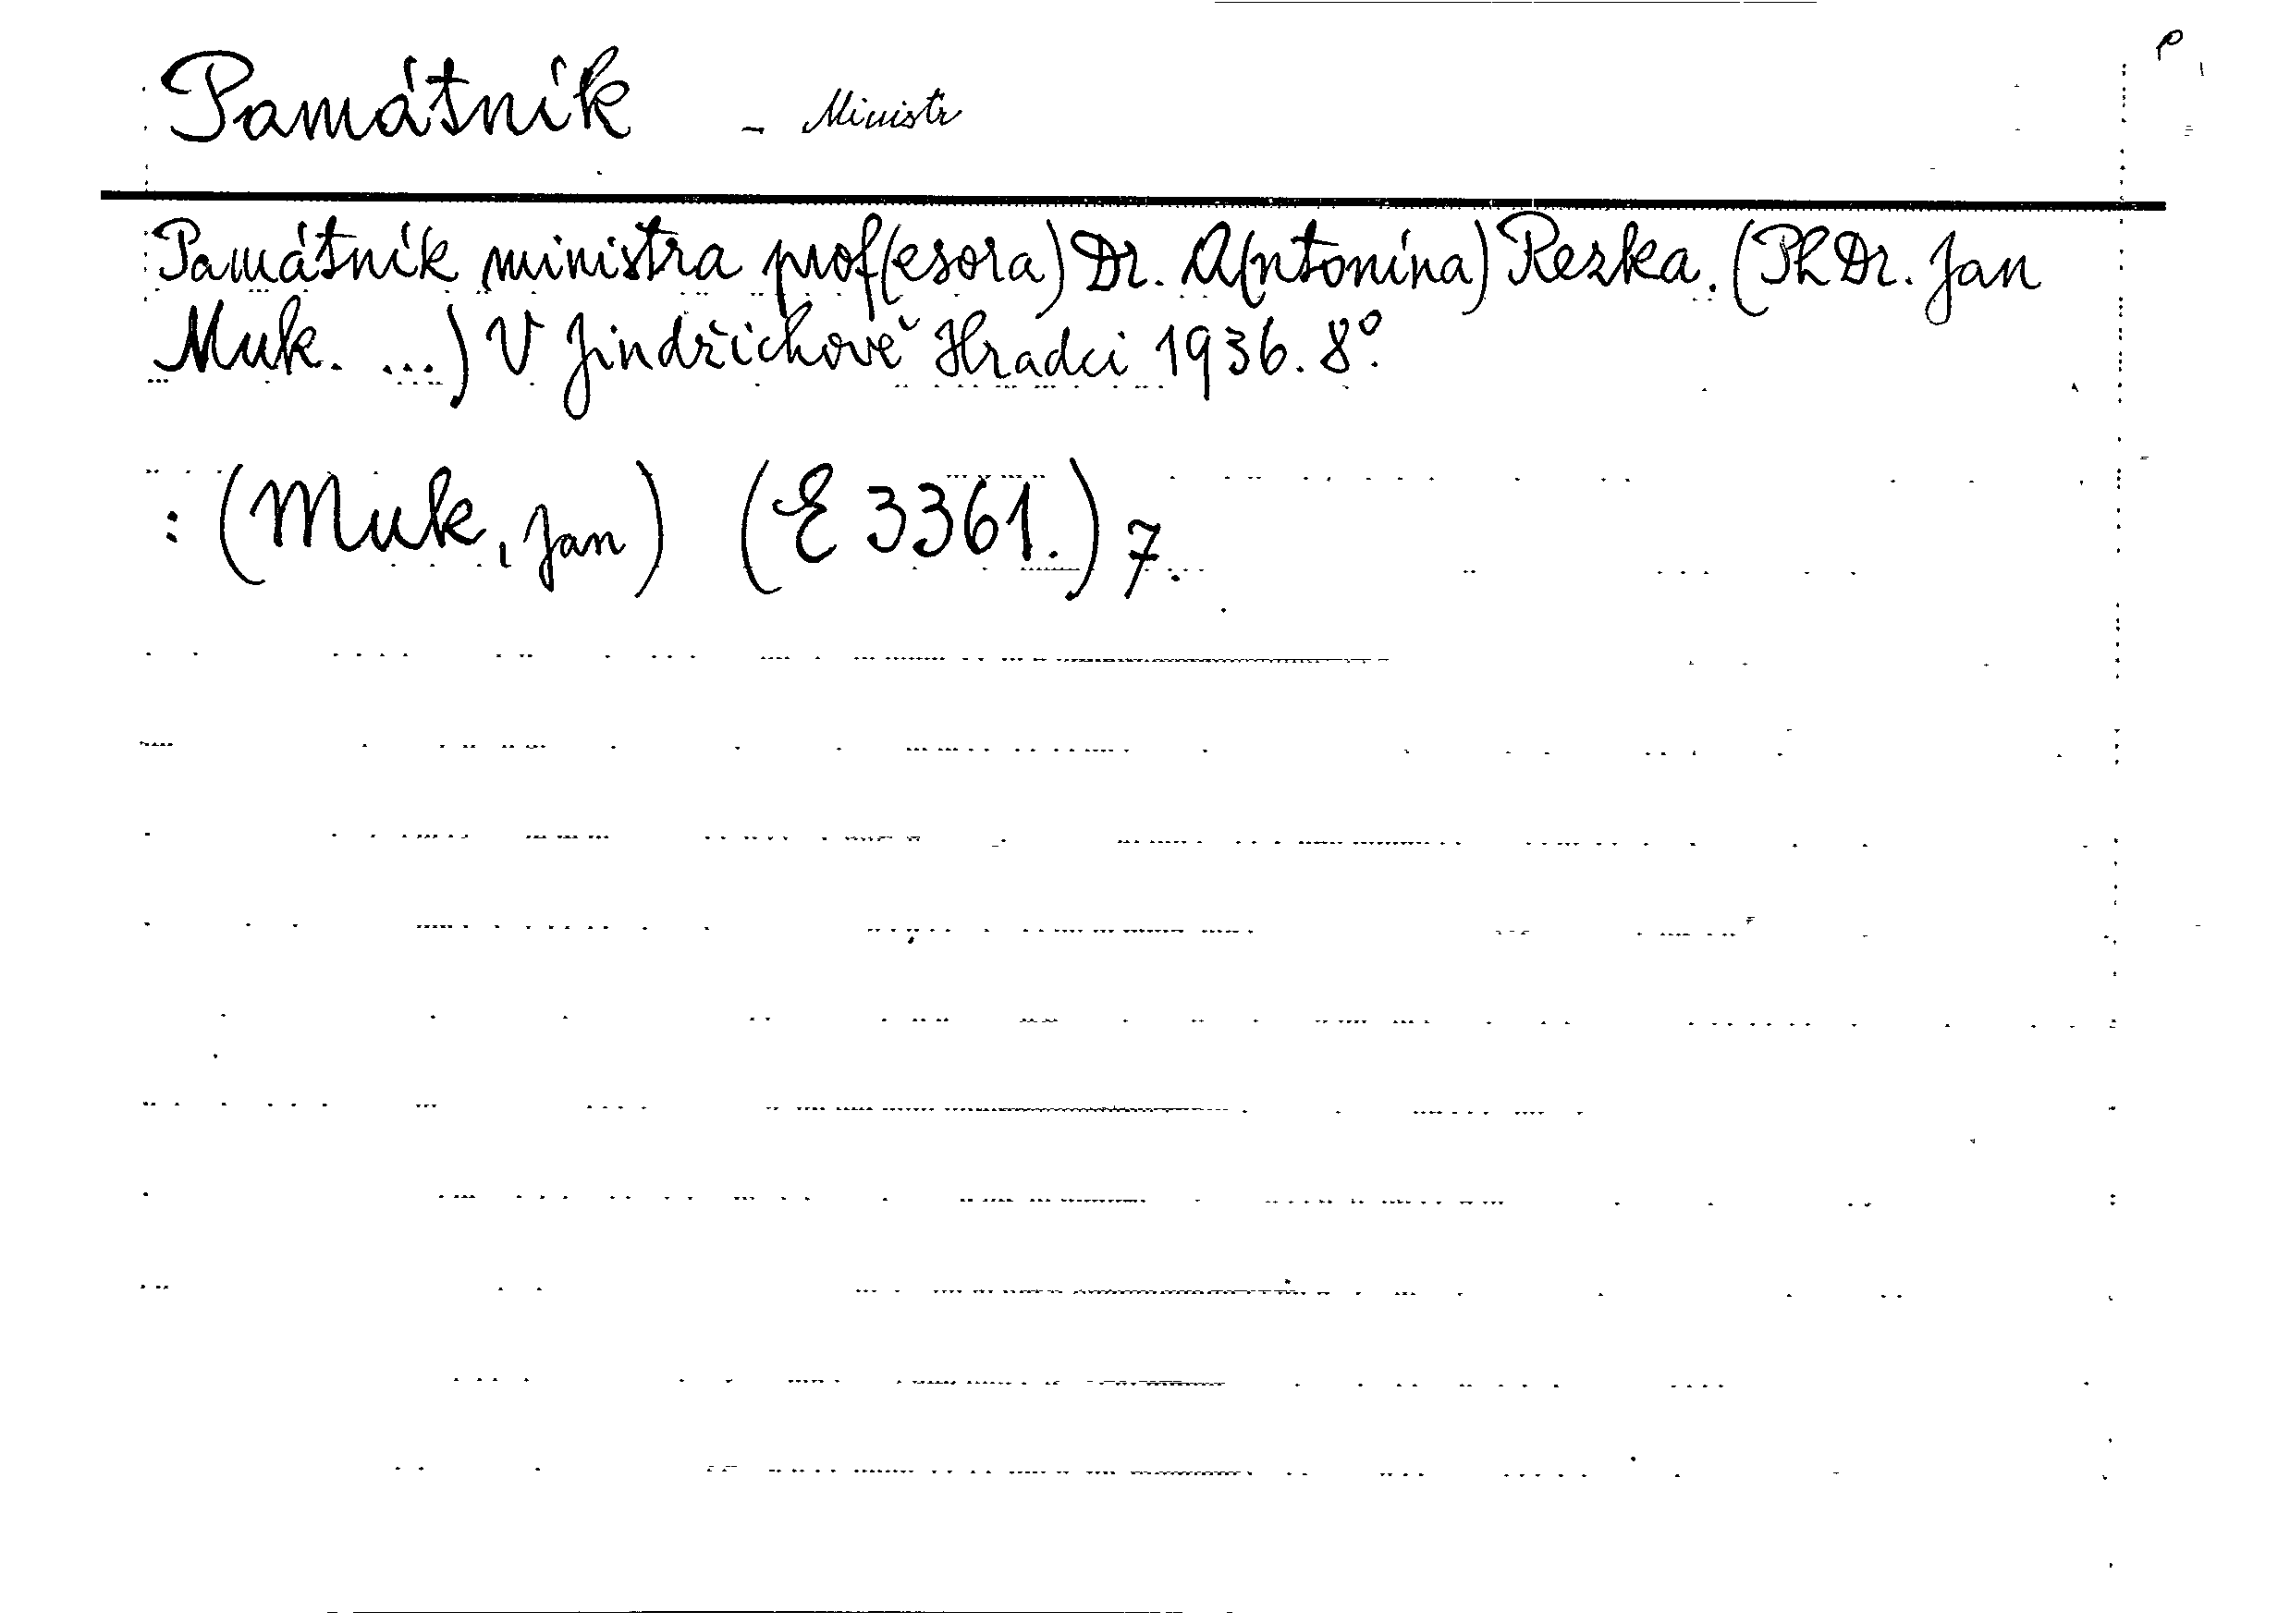 P
Památník - Ministr
Památník ministra prof(esora) Dr. A(ntonína) Rezka. (PhDr. Jan
Muk. ...) V Jindřichově Hradci 1936. 8°.
: (Muk, Jan) (E 3361.) 7.